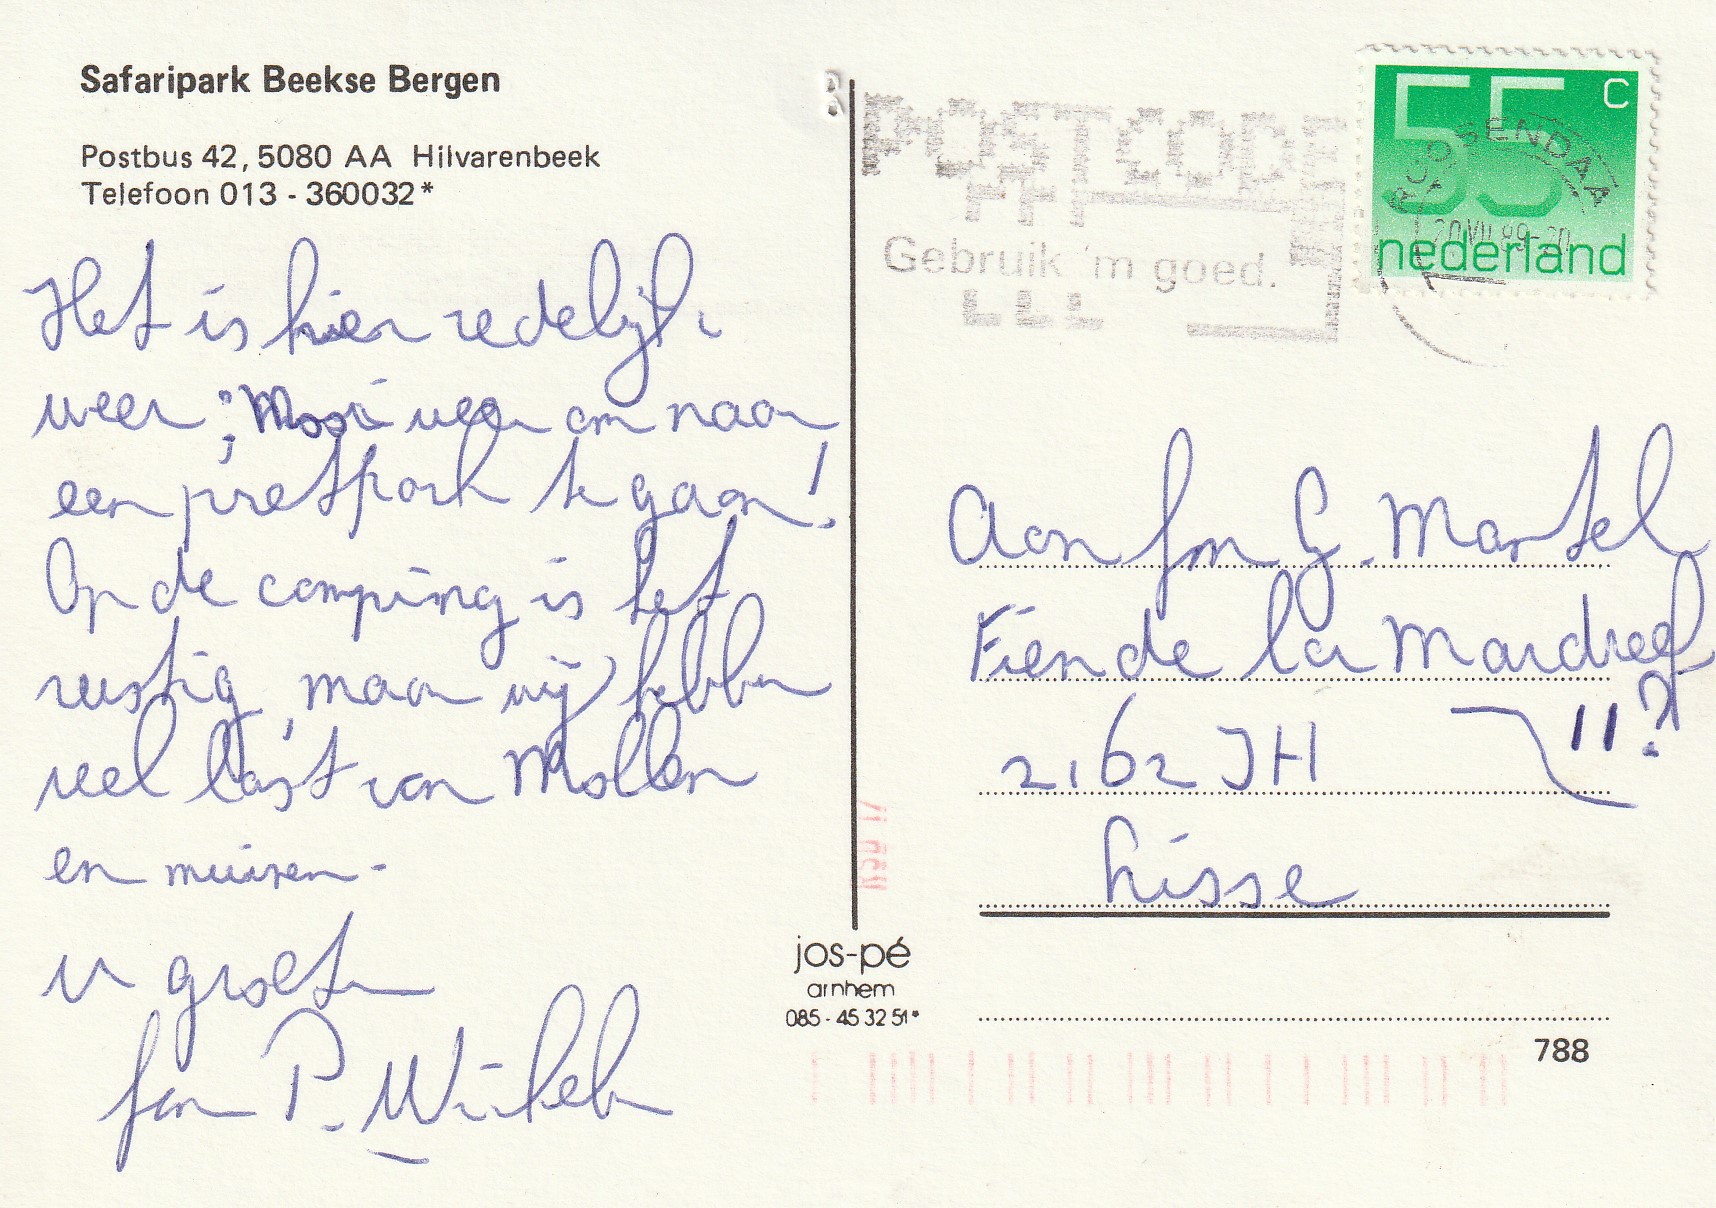 Safaripark Beekse Bergen
Postbus 42, 5080 AA Hilvarenbeek
Telefoon 013 - 360032*
Het is hier redelijk
weer; Mooi weer om naar
een pretpark te gaan!
Op de camping is het
rustig, maar wij hebben
veel last van Mollen
en muizen -
u groeten
fam P. Winkel
POSTCODE
Gebruik 'm goed.
55 c
nederland
ROOSENDAAL
20 VII 89-20
Aan fam G. Martel
Fien de la Mardreef
11?
2162 JH
Lisse
jos-pé
arnhem
085 - 45 32 51*
788